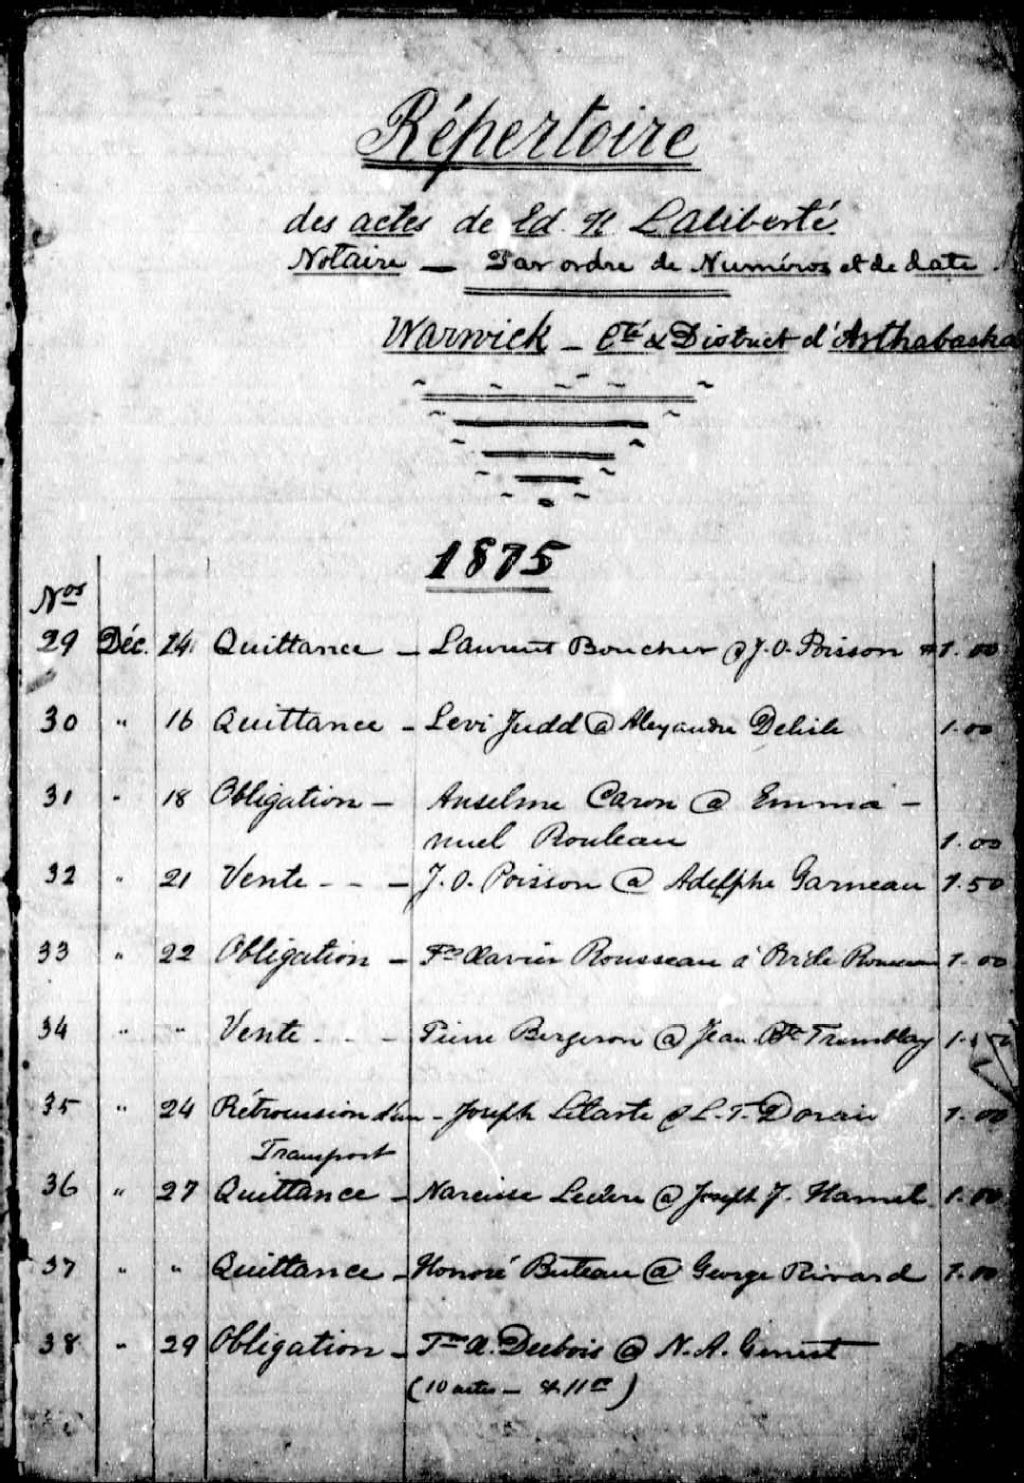 Répertoire
des actes de Ed. H Laliberté.
Notaire — Par ordre de Numéros et de date
Warwick — Cté & District d'Arthabaska
1875
Nos
29 Déc. 14 Quittance — Laurent Boucher @ J. O. Poisson $1.00
30 " 16 Quittance - Levi Judd @ Alexandre Delisle 1.00
31 " 18 Obligation — Anselme Caron @ Emma-
nuel Rouleau 1.00
32 " 21 Vente - - — J. O. Poisson @ Adelphe Garneau 1.50
33 " 22 Obligation — Fs Xavier Rousseau à Rousseau 1.00
34 " " Vente - - - Pierre Bergeron @ Jean Bte Tremblay
35 " 24 Rétrocession d'un - Joseph Letarte @ L. T. Dorais 1.00
Transport
36 " 27 Quittance - Narcisse Leclerc @ Joseph J. Hamel 1.00
37 " " Quittance - Honoré Buteau @ George Rivard 1.00
38 " 29 Obligation - A. Dubois @ N. A. Genest
(10 actes —